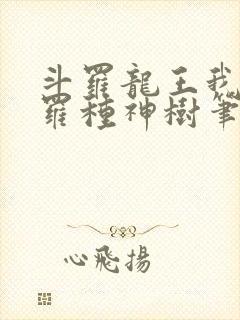 斗羅龍王我
羅種神樹筆
心飛揚